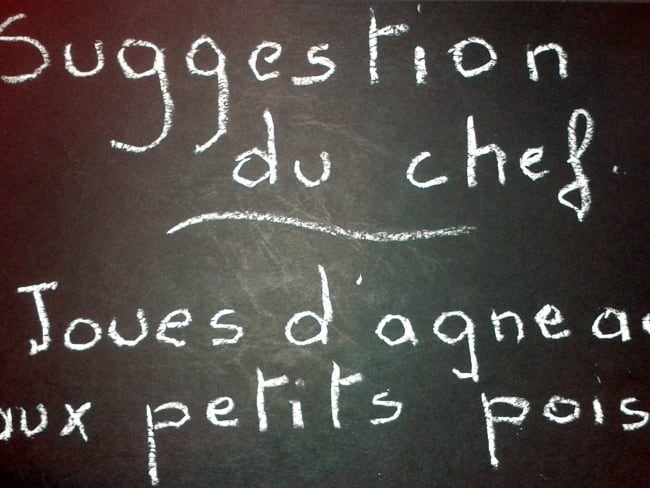 Suggestion
du chef.
Joues d'agneau
aux petits pois